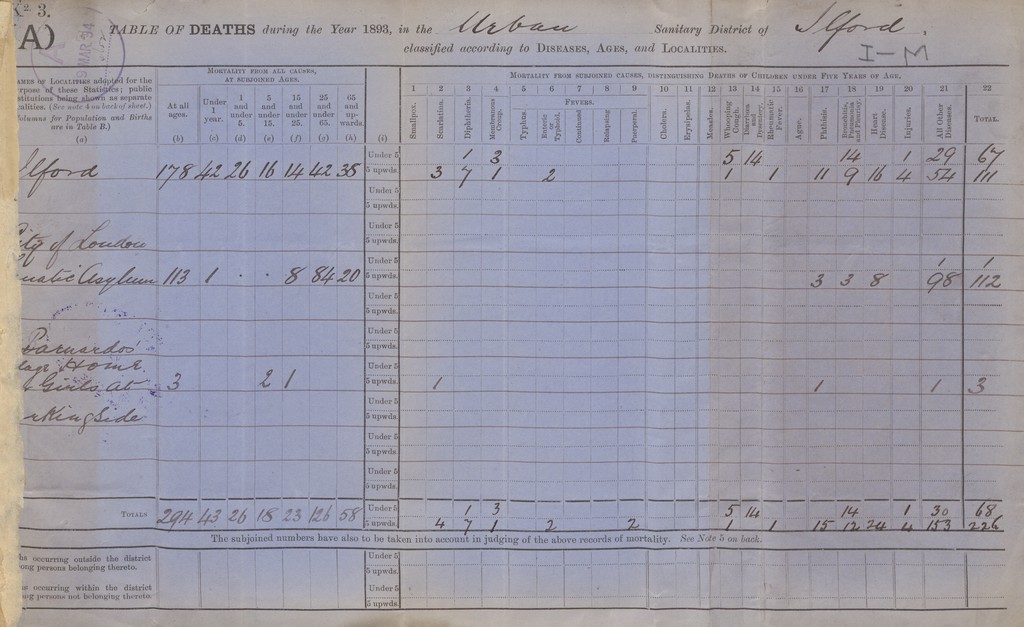 No. 3.
(A)
9 MAR 94
TABLE OF DEATHS during the Year 1893, in the Urban Sanitary District of Ilford.
classified according to DISEASES, AGES, and LOCALITIES.
I-M
AMES OF LOCALITIES adopted for the
rpose of these Statistics; public
stitutions being shown as separate
alities. (See note 4 on back of sheet.)
olumns for Population and Births
are in Table B.)
(a)
MORTALITY FROM ALL CAUSES,
AT SUBJOINED AGES.
At all ages. Under 1 year. 1 and under 5. 5 and under 15. 15 and under 25. 25 and under 65. 65 and upwards.
(b) (c) (d) (e) (f) (g) (h) (i)
MORTALITY FROM SUBJOINED CAUSES, DISTINGUISHING DEATHS OF CHILDREN UNDER FIVE YEARS OF AGE.
1 2 3 4 5 6 7 8 9 10 11 12 13 14 15 16 17 18 19 20 21 22
FEVERS.
Smallpox. Scarlatina. Diphtheria. Membranous Croup. Typhus. Enteric or Typhoid. Continued. Relapsing. Puerperal. Cholera. Erysipelas. Measles. Whooping Cough. Diarrhœa and Dysentery. Rheumatic Fever. Ague. Phthisis. Bronchitis, Pneumonia and Pleurisy. Heart Disease. Injuries. All Other Diseases. TOTAL.
Under 5 1 3 5 14 14 1 29 67
lford 178 42 26 16 14 42 38 5 upwds. 3 7 1 2 1 1 11 9 16 4 54 111
Under 5
5 upwds.
Under 5
ity of London 5 upwds.
Under 5 1 1
natic Asylum 113 1 . . 8 84 20 5 upwds. 3 3 8 98 112
Under 5
5 upwds.
Under 5
Barnardos' 5 upwds.
lage Home Under 5
Girls at 3 2 1 5 upwds. 1 1 1 3
Under 5
rkingside 5 upwds.
Under 5
5 upwds.
Under 5
5 upwds.
TOTALS 294 43 26 18 23 126 58 Under 5 1 3 5 14 14 1 30 68
5 upwds. 4 7 1 2 2 1 1 15 12 24 4 153 226
The subjoined numbers have also to be taken into account in judging of the above records of mortality. See Note 5 on back.
hs occurring outside the district Under 5
ong persons belonging thereto. 5 upwds.
occurring within the district Under 5
ng persons not belonging thereto. 5 upwds.